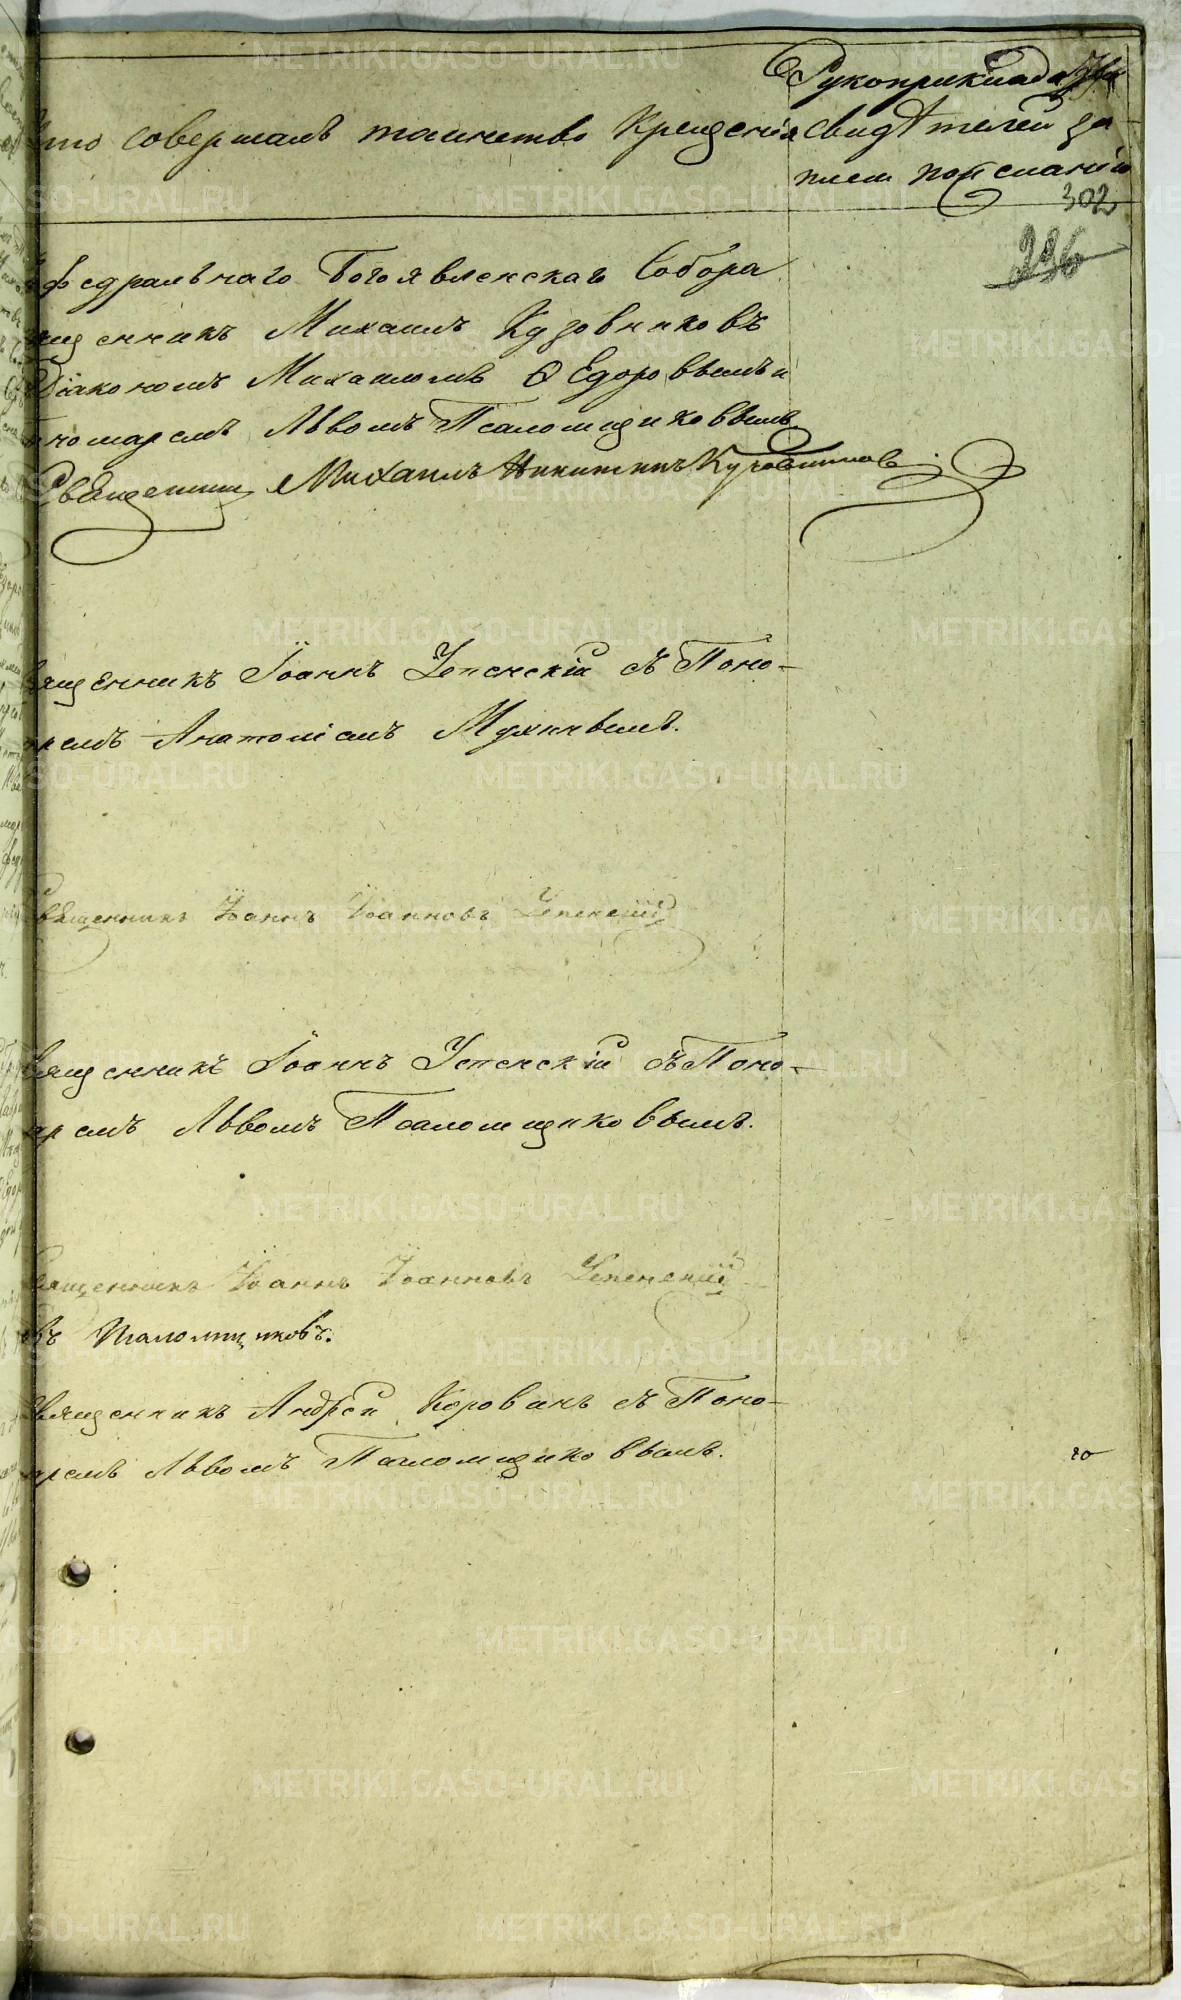 Кто совершалъ таинство Крещенія
Рукоприкладство
свидѣтелей за-
писи по желанію
302
296
федральнаго Богоявленскаго Собора
священникъ Михаилъ Кудовниковъ
Діакономъ Михаиломъ Ѳедоровымъ и
номаремъ Львомъ Псаломщиковымъ
Священникъ Михаилъ Никитинъ Кудовников
священникъ Іоаннъ Успенскій съ Поно-
аремъ Анатоліемъ Мухинымъ.
священникъ Іоаннъ Іоанновъ Успенскій
священникъ Іоаннъ Успенскій съ Поно-
аремъ Львомъ Псаломщиковымъ.
священникъ Іоаннъ Іоанновъ Успенскій
въ Псаломщиковъ.
священникъ Андрей Корованъ съ Поно-
аремъ Львомъ Псаломщиковымъ.
METRIKI.GASO-URAL.RU